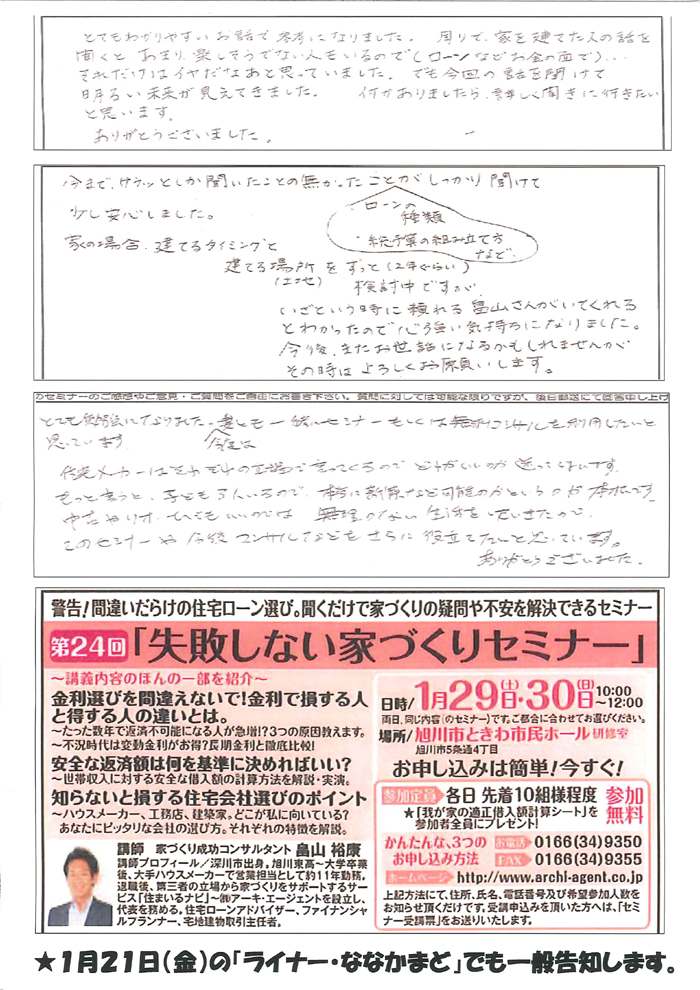 とてもわかりやすいお話で参考になりました。 周りで、家を建てた人の話を
聞くと あまり楽しそうでない人もいるので(ローンなどお金の面で)…
それだけはイヤだなあと思っていました。でも今回の話を聞けて
明るい未来が見えてきました。 何かありましたら、詳しく聞きに行きたい
と思います。
ありがとうございました。
今まで、サラッとしか聞いたことの無かったことがしっかり聞けて
少し安心しました。
・ローンの
種類
・総予算の組み立て方
など
家の場合、建てるタイミングと
建てる場所をずっと(2年ぐらい)
(土地) 検討中ですが
いざという時に頼れる畠山さんがいてくれる
とわかったので心強い気持ちになりました。
今後、またお世話になるかもしれませんが
その時はよろしくお願いします。
のセミナーのご感想やご意見・ご質問をご自由にお書き下さい。質問に対しては可能な限りですが、後日郵送にて回答申し上げ
とても勉強になりました。妻とも一緒にセミナーもしくは無料コンサルを利用したいと
思っています 今度は
住宅メーカーはそれぞれの立場で言ってくるので どれがいいか迷ってしまいます。
もっと言うと、子ども3人いるので、本当に新築など可能なのかというのが本松です
無理のない生活をしたいので
このセミナーや今後コンサルなどをさらに役立てたいと思っています。
ありがとうございました。
警告!間違いだらけの住宅ローン選び。聞くだけで家づくりの疑問や不安を解決できるセミナー
第24回「失敗しない家づくりセミナー」
~講義内容のほんの一部を紹介~
金利選びを間違えないで!金利で損する人
と得する人の違いとは。
~たった数年で返済不可能になる人が急増!?3つの原因教えます。
~不況時代は変動金利がお得?長期金利と徹底比較!
安全な返済額は何を基準に決めればいい?
~世帯収入に対する安全な借入額の計算方法を解説・実演。
知らないと損する住宅会社選びのポイント
~ハウスメーカー、工務店、建築家。どこが私に向いている?
あなたにピッタリな会社の選び方。それぞれの特徴を解説。
講師 家づくり成功コンサルタント 畠山 裕康
講師プロフィール/深川市出身。旭川東高~大学卒業
後、大手ハウスメーカーで営業担当として約11年勤務。
退職後、第三者の立場から家づくりをサポートするサー
ビス「住まいるナビ」~㈱アーキ・エージェントを設立し、
代表を務める。住宅ローンアドバイザー、ファイナンシャ
ルプランナー、宅地建物取引主任者。
日時/1月29日(土)・30日(日)10:00~12:00
両日、同じ内容(のセミナー)です。ご都合に合わせてお選びください。
場所/旭川市ときわ市民ホール 研修室
旭川市5条通4丁目
お申し込みは簡単!今すぐ!
参加定員 各日 先着10組様程度 参加無料
★「我が家の適正借入額計算シート」を
参加者全員にプレゼント!
かんたんな、3つのお申し込み方法
お電話 0166(34)9350
FAX 0166(34)9355
ホームページ http://www.archi-agent.co.jp
上記方法にて、住所、氏名、電話番号及び希望参加人数を
お知らせ頂くだけです。受講申込みを頂いた方へは、「セミ
ナー受講票」をお送りいたします。
★1月21日(金)の「ライナー・ななかまど」でも一般告知します。